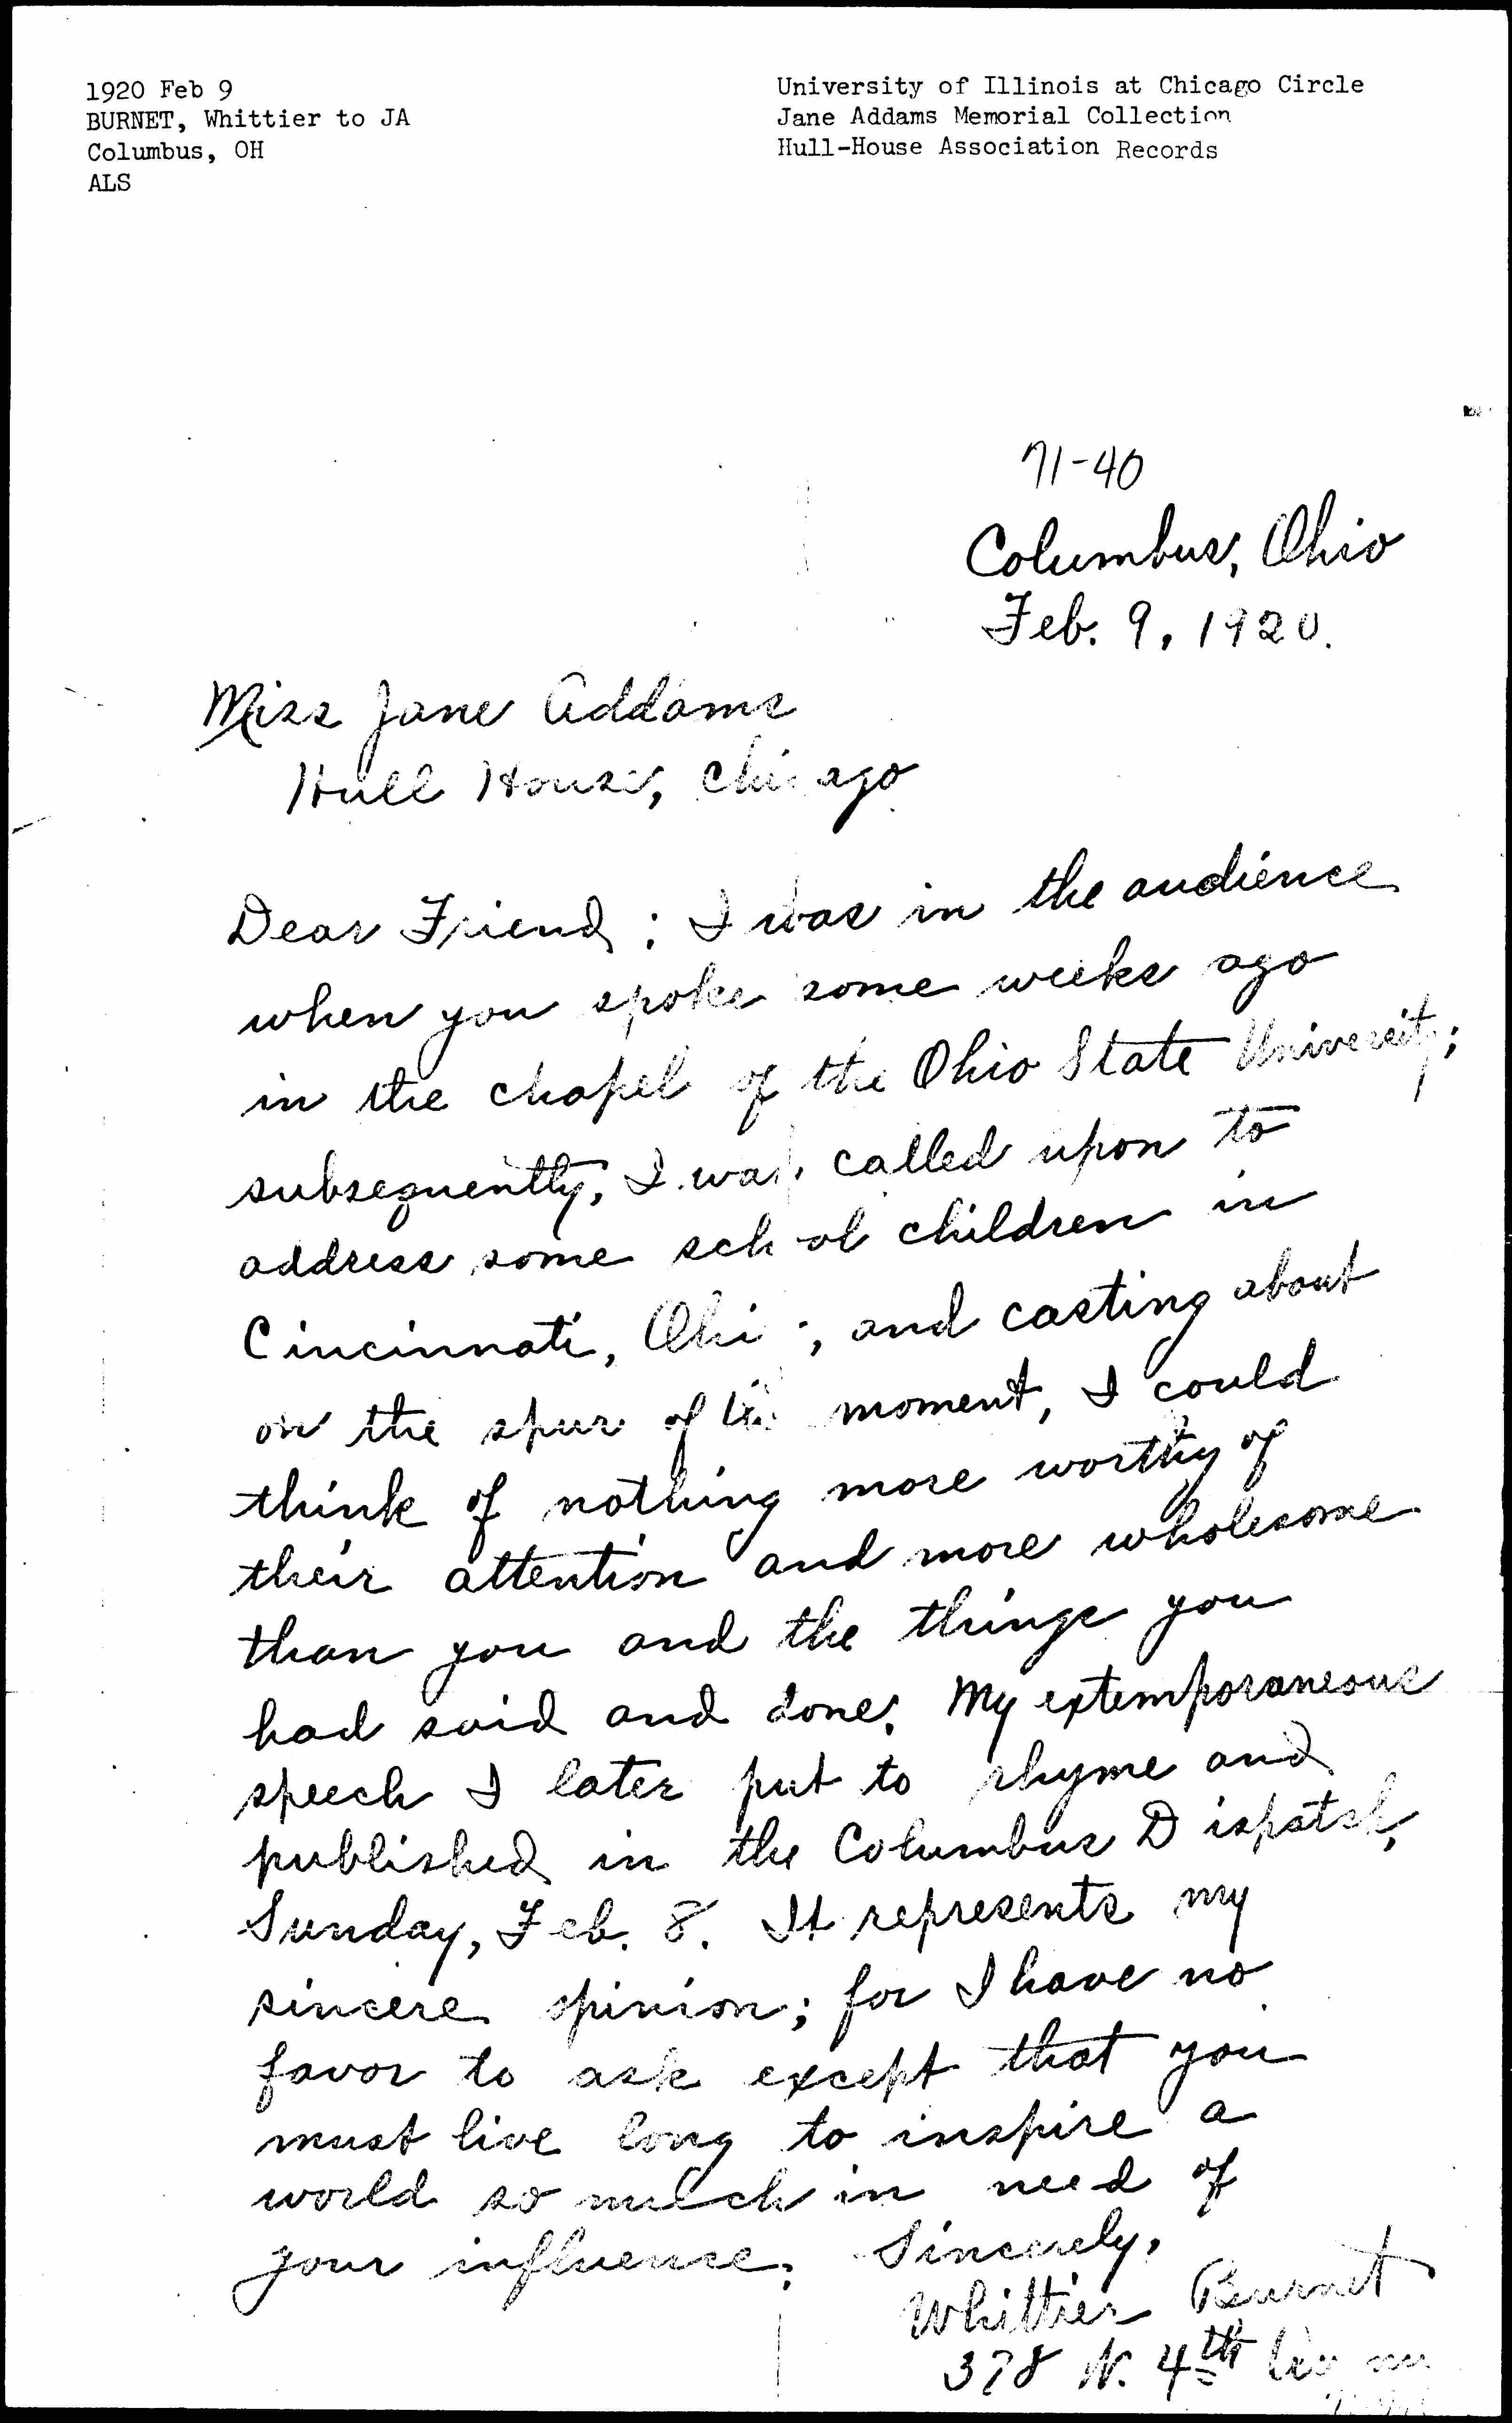 1920 Feb 9
BURNET, Whittier to JA
Columbus, OH
ALS
University of Illinois at Chicago Circle
Jane Addams Memorial Collection
Hull-House Association Records
71-40
Columbus, Ohio
Feb. 9, 1920.
Miss Jane Addams
Hull House, Chicago
Dear Friend: I was in the audience
when you spoke some weeks ago
in the chapel of the Ohio State University;
subsequently, I was called upon to
address some school children in
Cincinnati, Ohio; and casting about
on the spur of the moment, I could
think of nothing more worthy of
their attention and more wholesome
than you and the things you
had said and done. My extemporaneous
speech I later put to rhyme and
published in the Columbus Dispatch,
Sunday, Feb. 8. It represents my
sincere opinion; for I have no
favor to ask except that you
must live long to inspire a
world so much in need of
your influence. Sincerely,
Whittier Burnet
378 N. 4th